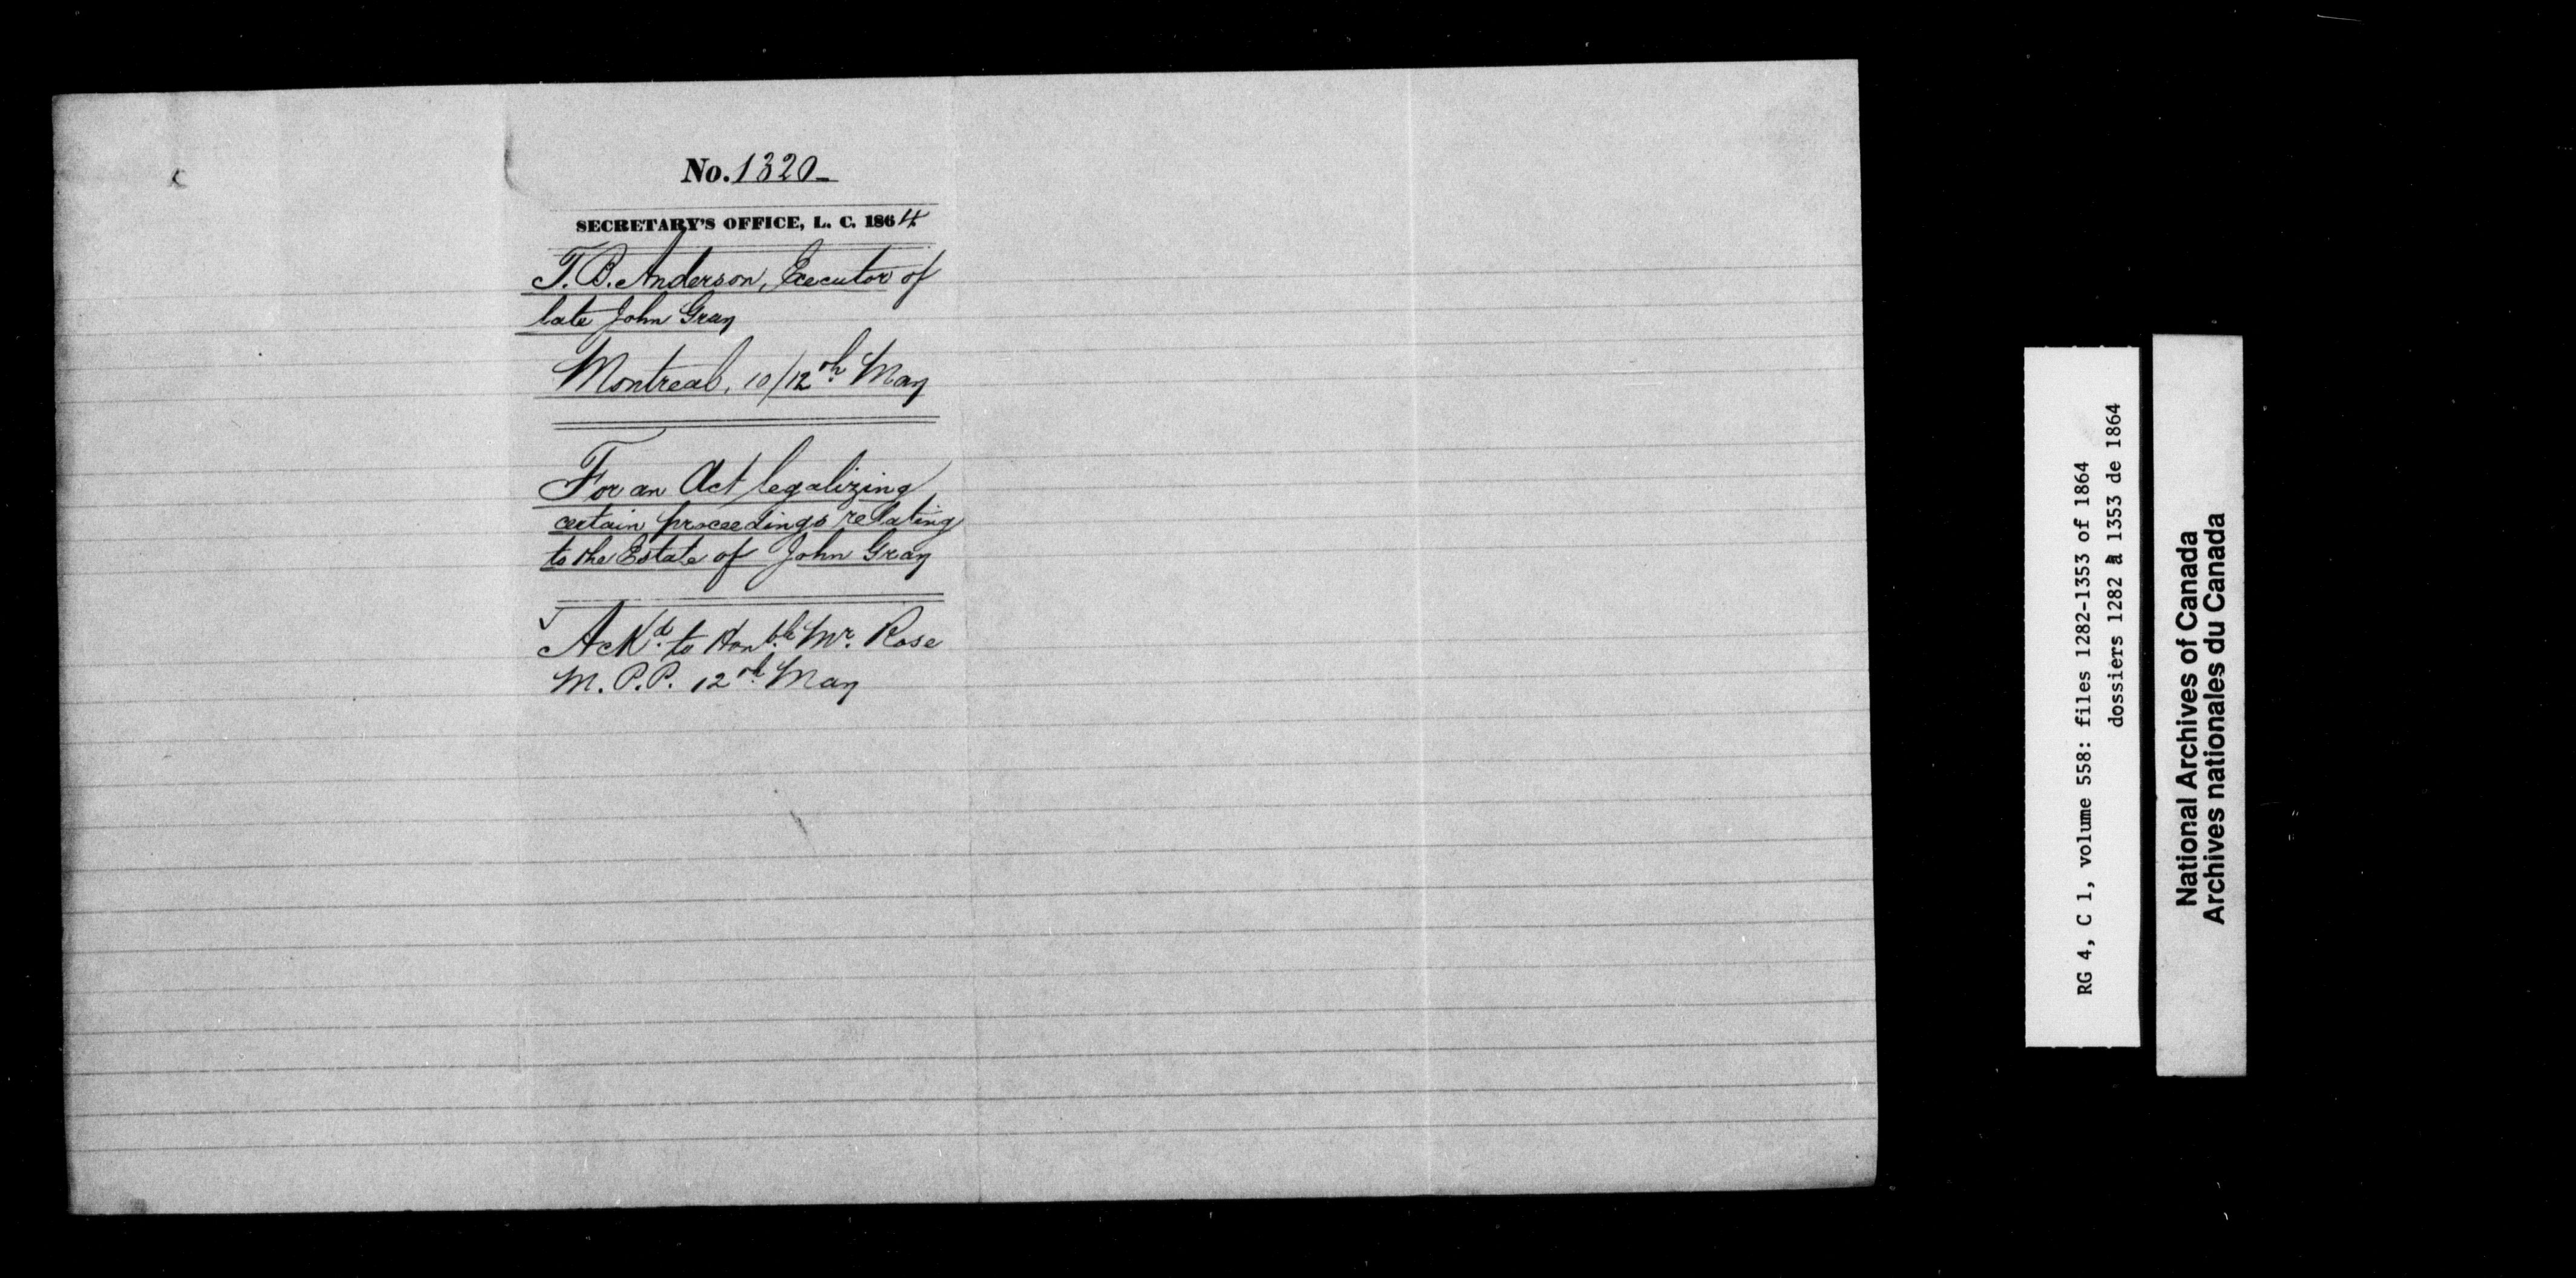 No. 1320
SECRETARY'S OFFICE, L. C. 1864
T. B. Anderson, Executor of
late John Gray
Montreal, 10/12th May
For an Act legalizing
certain proceedings relating
to the Estate of John Gray
Ackd. to Honble Mr. Rose
M. P. P. 12th May
RG 4, C 1, volume 558: files 1282-1353 of 1864
dossiers 1282 à 1353 de 1864
National Archives of Canada
Archives nationales du Canada